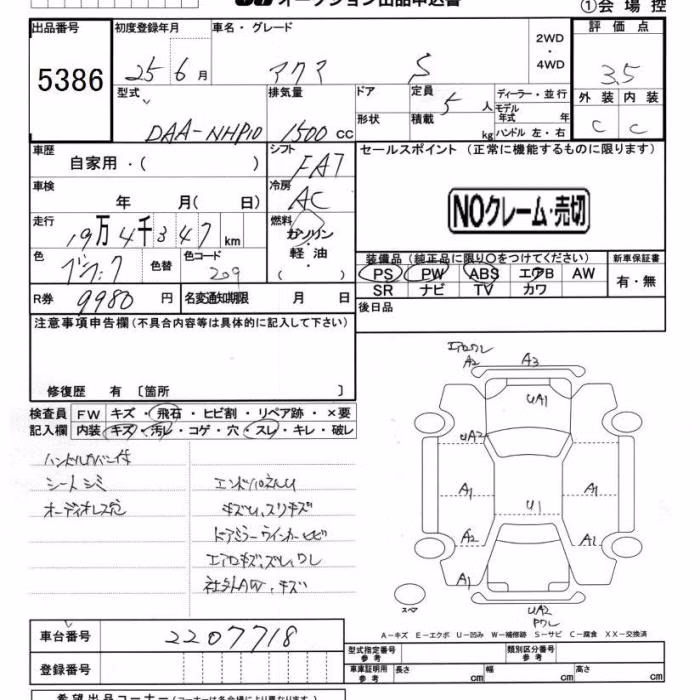 オークション出品申込書
①会場控
出品番号 初度登録年月 車名・グレード 2WD・4WD 評価点
5386 25年6月 アクア S 3.5
型式 排気量 ドア 定員 5人 ディーラー・並行 外装 内装
形状 積載 kg モデル年式 年 C C
DAA-NHP10 1500cc ハンドル 左・右
車歴 シフト FAT セールスポイント(正常に機能するものに限ります)
自家用・( )
車検 冷房 AC
年 月( 日) NOクレーム・売切
走行 燃料
19万4千347km ガソリン・軽油・( )
色 色替 色コード 装備品(純正品に限り○をつけてください) 新車保証書
209 PS PW ABS エアB AW 有・無
SR ナビ TV カワ
R券 9980円 名変通知期限 月 日 後日品
注意事項申告欄(不具合内容等は具体的に記入して下さい)
修復歴 有〔箇所 〕
検査員記入欄 FW キズ・飛石・ヒビ割・リペア跡・×要
内装 キズ・汚レ・コゲ・穴・スレ・キレ・破レ
シートシミ
オーディオレス穴
キズU、スリキズ
ドアミラーウインカーヒビ
エアロキズ、ズレ、ワレ
社外AW、キズ
エアロワレ
A2 A3
UA1
UA2
A1 A1
U1
A2 A2
A1
UA2
ワレ
スペア
A-キズ E-エクボ U-凹み W-補修跡 S-サビ C-腐食 XX-交換済
車台番号 2207718 型式指定番号 参考 類別区分番号 参考
登録番号 車庫証明用 参考 長さ cm 幅 cm 高さ cm
希望出品コーナー